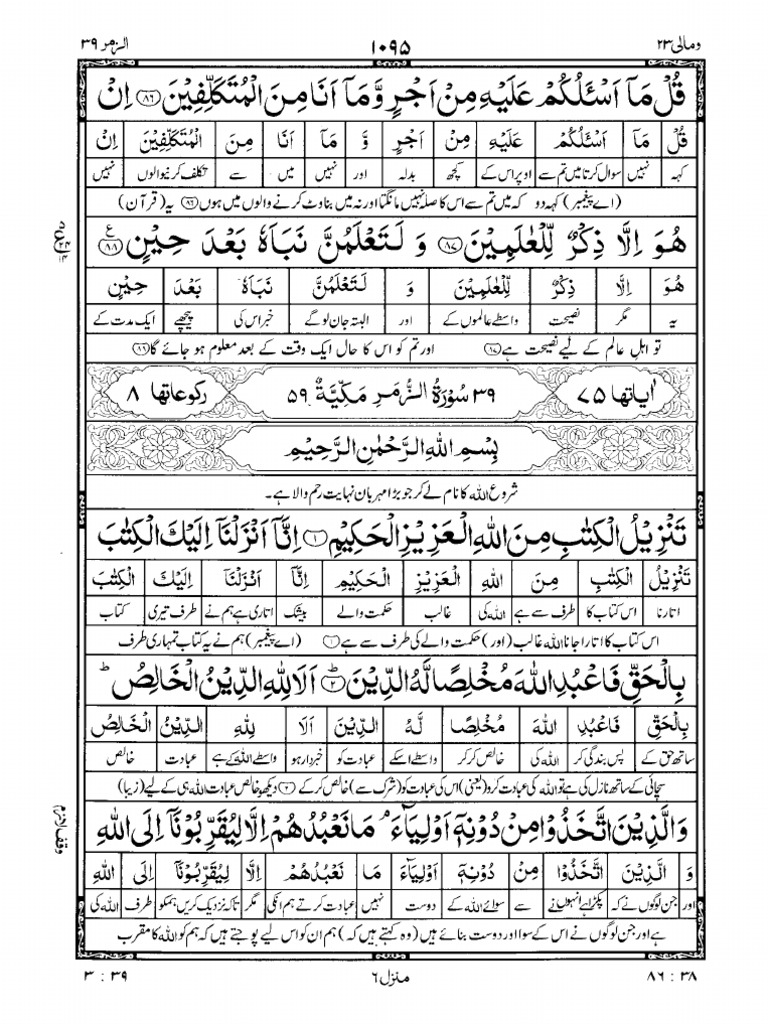 ومالی ۲۳ ۱۰۹۵ الزمر ۳۹
قُلْ مَآ اَسْـَٔلُكُمْ عَلَيْهِ مِنْ اَجْرٍ وَّمَآ اَنَا مِنَ الْمُتَكَلِّفِيْنَ ﴿۸۶﴾ اِنْ
قُلْ مَآ اَسْـَٔلُكُمْ عَلَيْهِ مِنْ اَجْرٍ وَّ مَآ اَنَا مِنَ الْمُتَكَلِّفِيْنَ اِنْ
کہہ نہیں سوال کرتا میں تم سے اوپر اس کے کچھ بدلہ اور نہیں میں سے تکلف کرنیوالوں نہیں
(اے پیغمبر) کہہ دو کہ میں تم سے اس کا صلہ نہیں مانگتا اور نہ میں بناوٹ کرنے والوں میں ہوں ﴿۸۶﴾ یہ (قرآن)
هُوَ اِلَّا ذِكْرٌ لِّلْعٰلَمِيْنَ ﴿۸۷﴾ وَ لَتَعْلَمُنَّ نَبَاَهٗ بَعْدَ حِيْنٍ ﴿۸۸﴾
هُوَ اِلَّا ذِكْرٌ لِّلْعٰلَمِيْنَ وَ لَتَعْلَمُنَّ نَبَاَهٗ بَعْدَ حِيْنٍ
یہ مگر نصیحت واسطے عالموں کے اور البتہ جان لو گے خبر اس کی پیچھے ایک مدت کے
تو اہلِ عالم کے لیے نصیحت ہے ﴿۸۷﴾ اور تم کو اس کا حال ایک وقت کے بعد معلوم ہو جائے گا ﴿۸۸﴾
اٰیاتها ۷۵ ۳۹ سُوْرَةُ الزُّمَرِ مَكِّيَّةٌ ۵۹ رکوعاتها ۸
بِسْمِ اللهِ الرَّحْمٰنِ الرَّحِيْمِ
شروع الله کا نام لے کر جو بڑا مہربان نہایت رحم والا ہے۔
تَنْزِيْلُ الْكِتٰبِ مِنَ اللهِ الْعَزِيْزِ الْحَكِيْمِ ﴿۱﴾ اِنَّآ اَنْزَلْنَآ اِلَيْكَ الْكِتٰبَ
تَنْزِيْلُ الْكِتٰبِ مِنَ اللهِ الْعَزِيْزِ الْحَكِيْمِ اِنَّآ اَنْزَلْنَآ اِلَيْكَ الْكِتٰبَ
اتارنا اس کتاب کا طرف سے ہے الله کی غالب حکمت والے بیشک اتاری ہے ہم نے طرف تیری کتاب
اس کتاب کا اتارا جانا الله غالب (اور) حکمت والے کی طرف سے ہے ﴿۱﴾ (اے پیغمبر) ہم نے یہ کتاب تمہاری طرف
بِالْحَقِّ فَاعْبُدِ اللهَ مُخْلِصًا لَّهُ الدِّيْنَ ﴿۲﴾ اَلَا لِلهِ الدِّيْنُ الْخَالِصُ ط
بِالْحَقِّ فَاعْبُدِ اللهَ مُخْلِصًا لَّهُ الدِّيْنَ اَلَا لِلهِ الدِّيْنُ الْخَالِصُ
ساتھ حق کے پس بندگی کر الله کی خالص کر کر واسطے اسکے عبادت کو خبردار ہو واسطے الله کے ہے عبادت خالص
سچائی کے ساتھ نازل کی ہے تو الله کی عبادت کرو (یعنی) اس کی عبادت کو (شرک سے) خالص کر کے ﴿۲﴾ دیکھو خالص عبادت الله ہی کے لیے (زیبا)
وَالَّذِيْنَ اتَّخَذُوْا مِنْ دُوْنِهٖٓ اَوْلِيَآءَ مَا نَعْبُدُهُمْ اِلَّا لِيُقَرِّبُوْنَآ اِلَى اللهِ
وَ الَّذِيْنَ اتَّخَذُوْا مِنْ دُوْنِهٖٓ اَوْلِيَآءَ مَا نَعْبُدُهُمْ اِلَّا لِيُقَرِّبُوْنَآ اِلَى اللهِ
اور جن لوگوں نے کہ پکڑا ہے انہوں نے سے سوائے الله کے دوست نہیں عبادت کرتے ہم انکی مگر تاکہ نزدیک کریں ہمکو طرف الله کی
ہے اور جن لوگوں نے اس کے سوا اور دوست بنائے ہیں (وہ کہتے ہیں کہ) ہم ان کو اس لیے پوجتے ہیں کہ ہم کو الله کا مقرب
۸۶ : ۳۸ منزل ۶ ۳ : ۳۹
وقف لازم